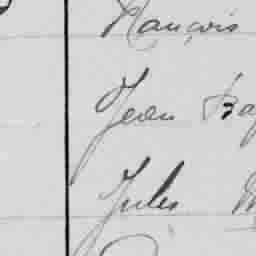 François
Jean Bap
Jules M